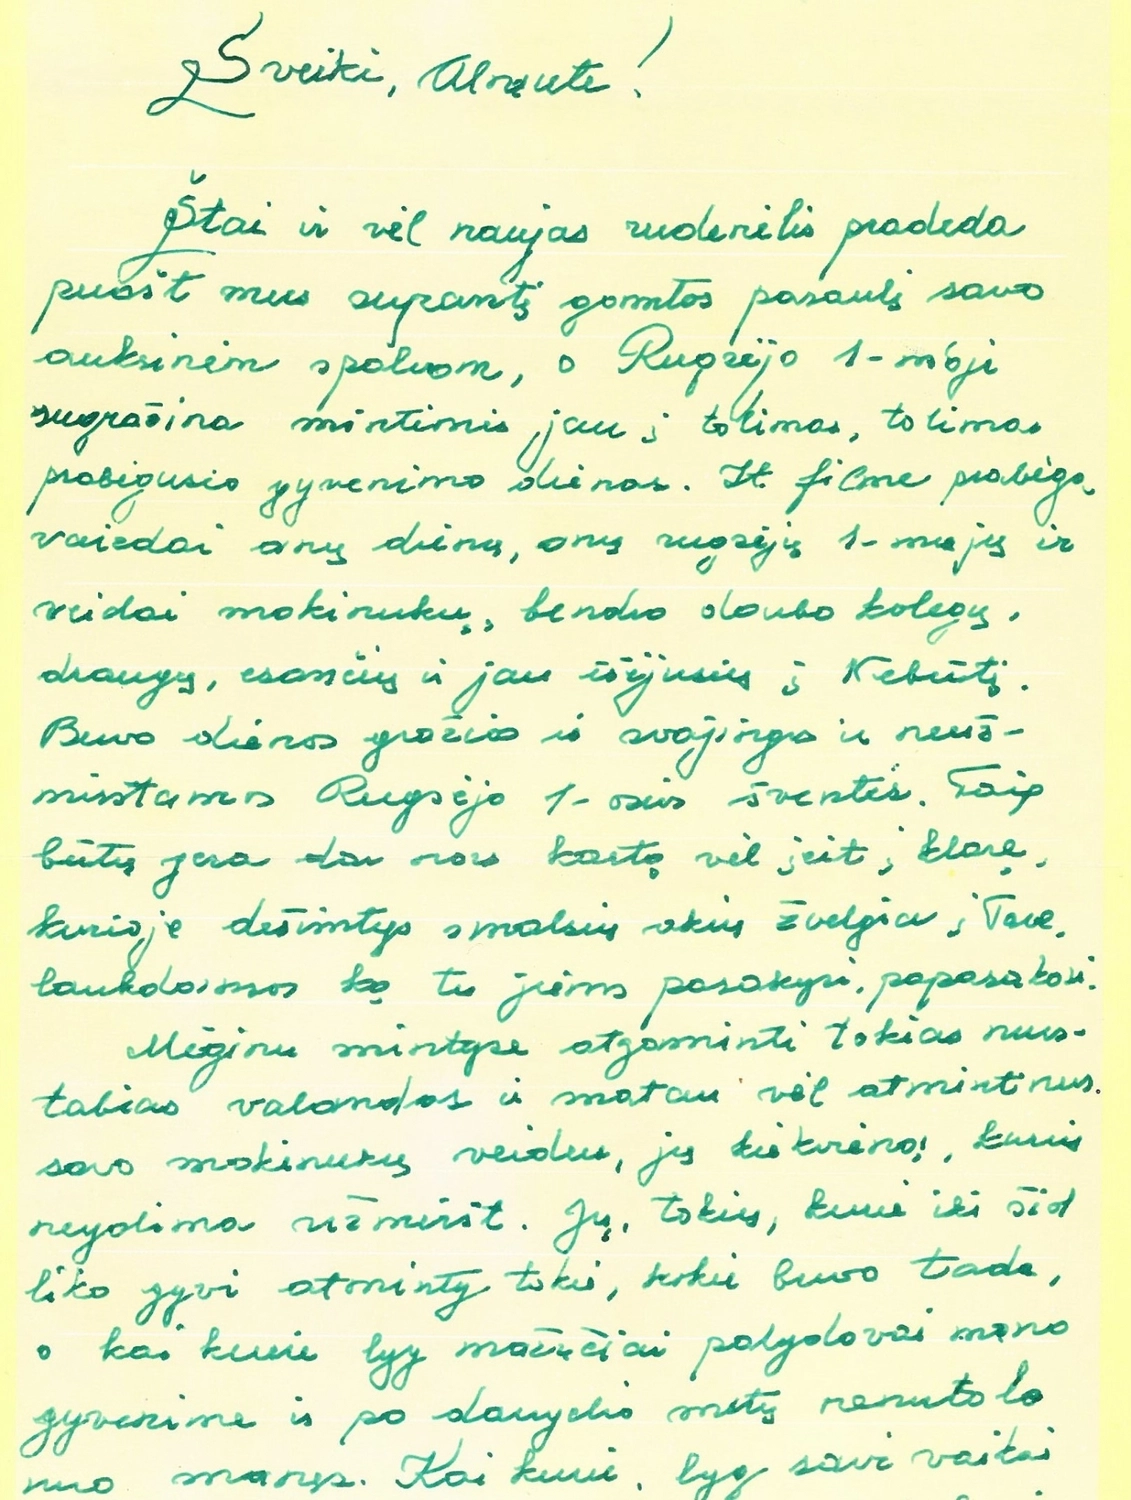 Sveiki, Almute!
Štai ir vėl naujas rudenėlis pradeda
puošt mus supantį gamtos pasaulį savo
auksinėm spalvom, o Rugsėjo 1-moji
sugrąžina mintimis jau į tolimas, tolimas
prabėgusio gyvenimo dienas. It filme prabėga
vaizdai anų dienų, anų rugsėjų 1-mųjų ir
veidai mokinukų, bendro darbo kolegų,
draugų, esančių ir jau išėjusių į Nebūtį.
Buvo dienos gražios ir svajingos ir neuž-
mirštamos Rugsėjo 1-osios šventės. Taip
būtų gera dar nors kartą vėl įeit į klasę,
kurioje dešimtys smalsių akių žvelgia į Tave,
laukdamos ką tu jiems pasakysi, papasakosi.
Mėginu mintyse atgaminti tokias nuos-
tabias valandas ir matau vėl atmintinus
savo mokinukų veidus, jų kiekvieno, kurių
neįdima užmiršt. Jų, tokių, kurie iki šiol
liko gyvi atminty tokie, kokie buvo tada,
o kai kurie lyg mažučiai palydovai mano
gyvenime ir po daugelio metų nenutolo
nuo manęs. Kai kurie, lyg savi vaikai